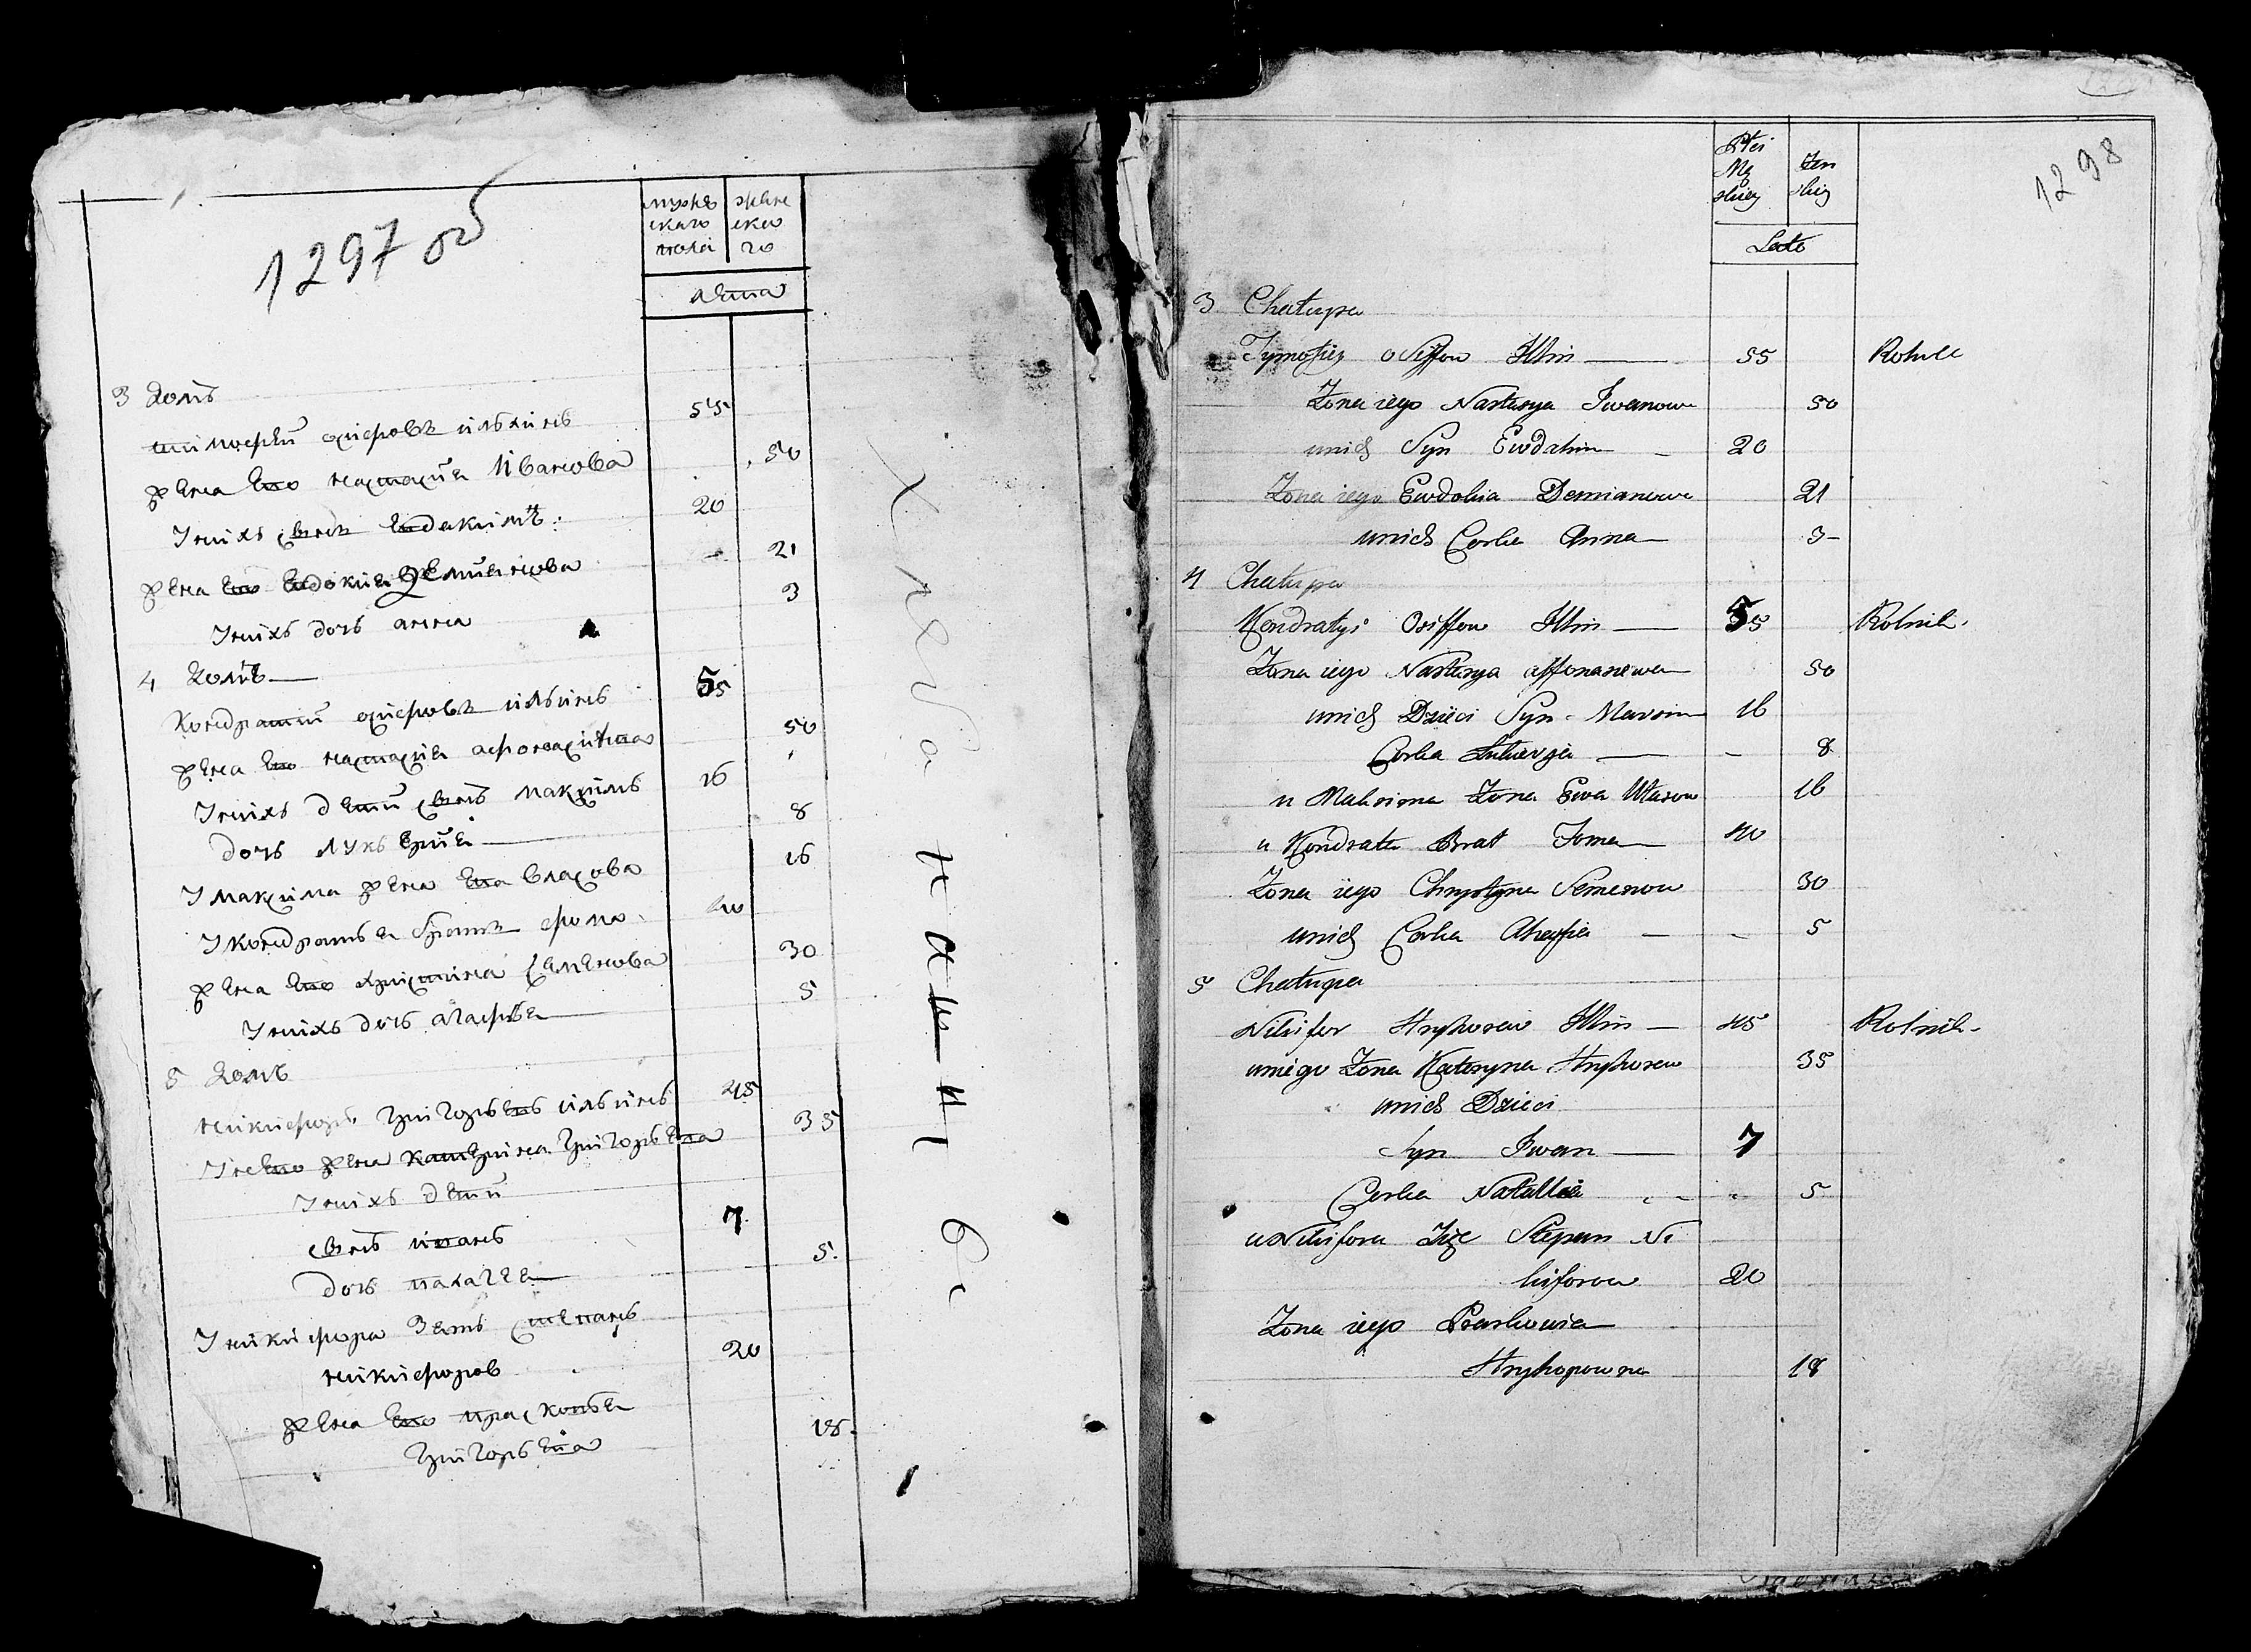 1297 об
мужес
каго
пола
женс
ка
го
лета
3 домъ
тимофей осифовъ ильинъ 55
жена ево настасия Ивановa 50
У нихъ сынъ Евдакимъ 20
жена ево Евдокия Демиянова 21
У нихъ дочь анна 3
4 домъ
Кондратий осифовъ ильинъ 55
жена ево настасия афонасиева 50
У нихъ дети сынъ максимъ 16
дочь лукьерия 8
У максима жена Ева власова 16
У Кондратья братъ фома 40
жена ево христина Семенова 30
У нихъ дочь агафья 5
5 домъ
никифоръ григорьевъ ильинъ 45
У нево жена катерина григорьева 35
У нихъ дети
сынъ иванъ 7
дочь наталея 5
У никифора зять степанъ
никифоров 20
жена ево прасковья
григорьева 18
1298
Płci
Mę
skiey
Żen
skiey
Lata
3 Chałupa
Tymofiey Osiffow Illin 55 Rolnik
Żona iego Nastasya Iwanowa 50
u nich Syn Ewdakim 20
Żona iego Ewdokia Demianowa 21
u nich Corka Anna 3
4 Chałupa
Kondratyi Osiffow Illin 55 Rolnik
Żona iego Nastasya affonasewa 50
u nich Dzieci Syn Maxim 16
Corka Łukierja 8
u Maksima Żona Ewa Własow 16
u Kondrata Brat Foma 40
Żona iego Chrystyna Semenowa 30
u nich Corka Ahafia 5
5 Chałupa
Nikifor Hryhorew Illin 45 Rolnik
u niego Żona Kateryna Hryhorewa 35
u nich Dzieci
Syn Iwan 7
Corka Natallia 5
u Nikifora Zięć Stepan Ni
kiforow 20
Żona iego Praskowia
Hryhorowna 18